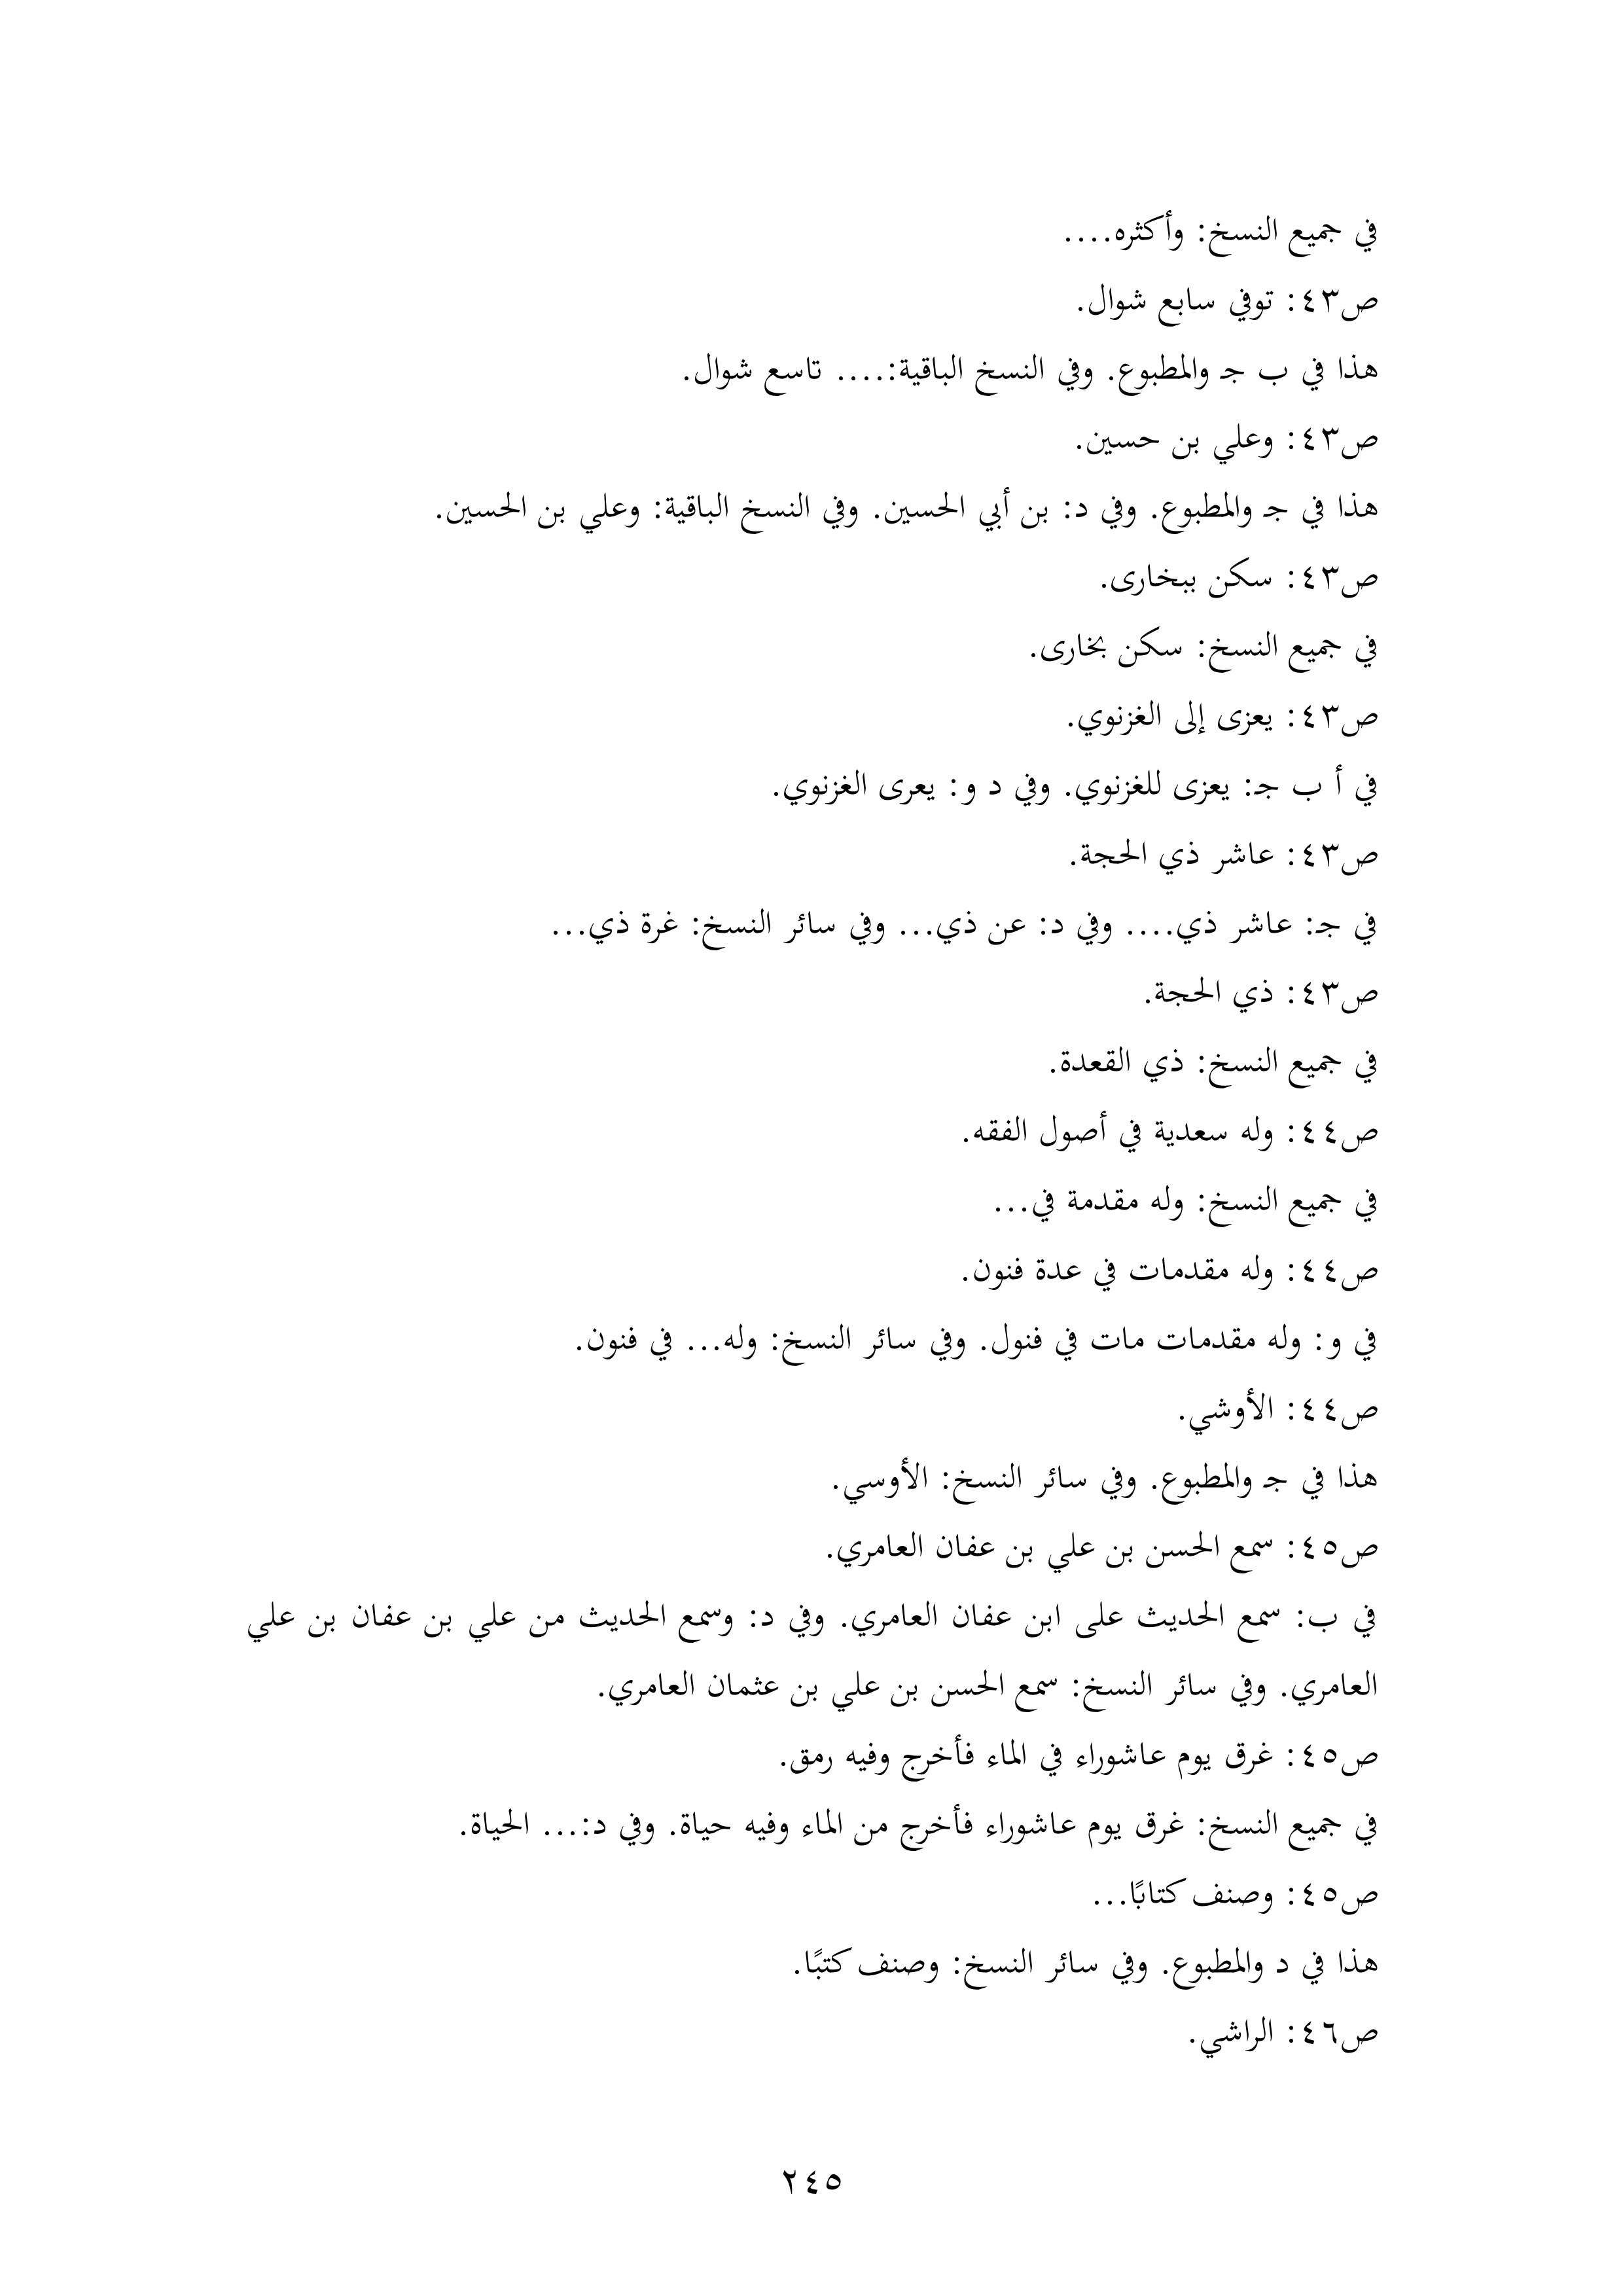 في جميع النسخ: وأكثره....
ص٤٣: توفي سابع شوال.
هذا في ب جـ والمطبوع. وفي النسخ الباقية:.... تاسع شوال.
ص٤٣: وعلي بن حسين.
هذا في جـ والمطبوع. وفي د: بن أبي الحسين. وفي النسخ الباقية: وعلي بن الحسين.
ص٤٣: سكن ببخارى.
في جميع النسخ: سكن بخارى.
ص٤٣: يعزى إلى الغزنوي.
في أ ب جـ: يعزى للغزنوي. وفي د و: يعرى الغزنوي.
ص٤٣: عاشر ذي الحجة.
في جـ: عاشر ذي.... وفي د: عن ذي... وفي سائر النسخ: غرة ذي...
ص٤٣: ذي الحجة.
في جميع النسخ: ذي القعدة.
ص٤٤: وله سعدية في أصول الفقه.
في جميع النسخ: وله مقدمة في...
ص٤٤: وله مقدمات في عدة فنون.
في و: وله مقدمات مات في فنول. وفي سائر النسخ: وله... في فنون.
ص٤٤: الأوشي.
هذا في جـ والمطبوع. وفي سائر النسخ: الأوسي.
ص٤٥: سمع الحسن بن علي بن عفان العامري.
في ب: سمع الحديث على ابن عفان العامري. وفي د: وسمع الحديث من علي بن عفان بن علي
العامري. وفي سائر النسخ: سمع الحسن بن علي بن عثمان العامري.
ص٤٥: غرق يوم عاشوراء في الماء فأخرج وفيه رمق.
في جميع النسخ: غرق يوم عاشوراء فأخرج من الماء وفيه حياة. وفي د:... الحياة.
ص٤٥: وصنف كتابًا...
هذا في د والمطبوع. وفي سائر النسخ: وصنف كتبًا.
ص٤٦: الراشي.
٢٤٥